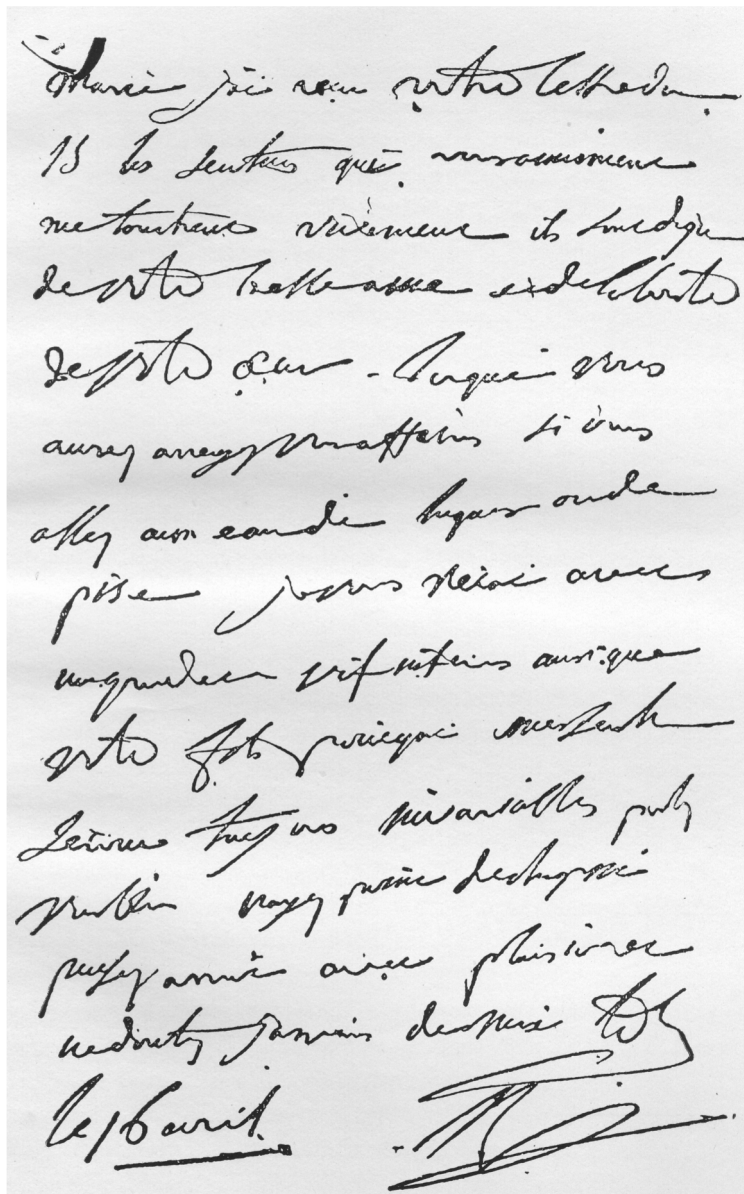 Marie j'ai reçu votre lettre du
15 les sentimens qui vous animent
me touchent vivement ils sont digne
de votre belle ame et de la bonté
de votre cœur - lorque vous
aurez arrengé vos affaires si vous
allez aux eaux de luques ou de
pise je vous verrai avec
un grand et vif interes ainsi que
votre fils pour qui mes sent
seront toujours invariables portez
vous bien n'ayez point de chagrin
pensez a moi avec plaisir et
ne doutez jamais de moi
le 16 avril
N